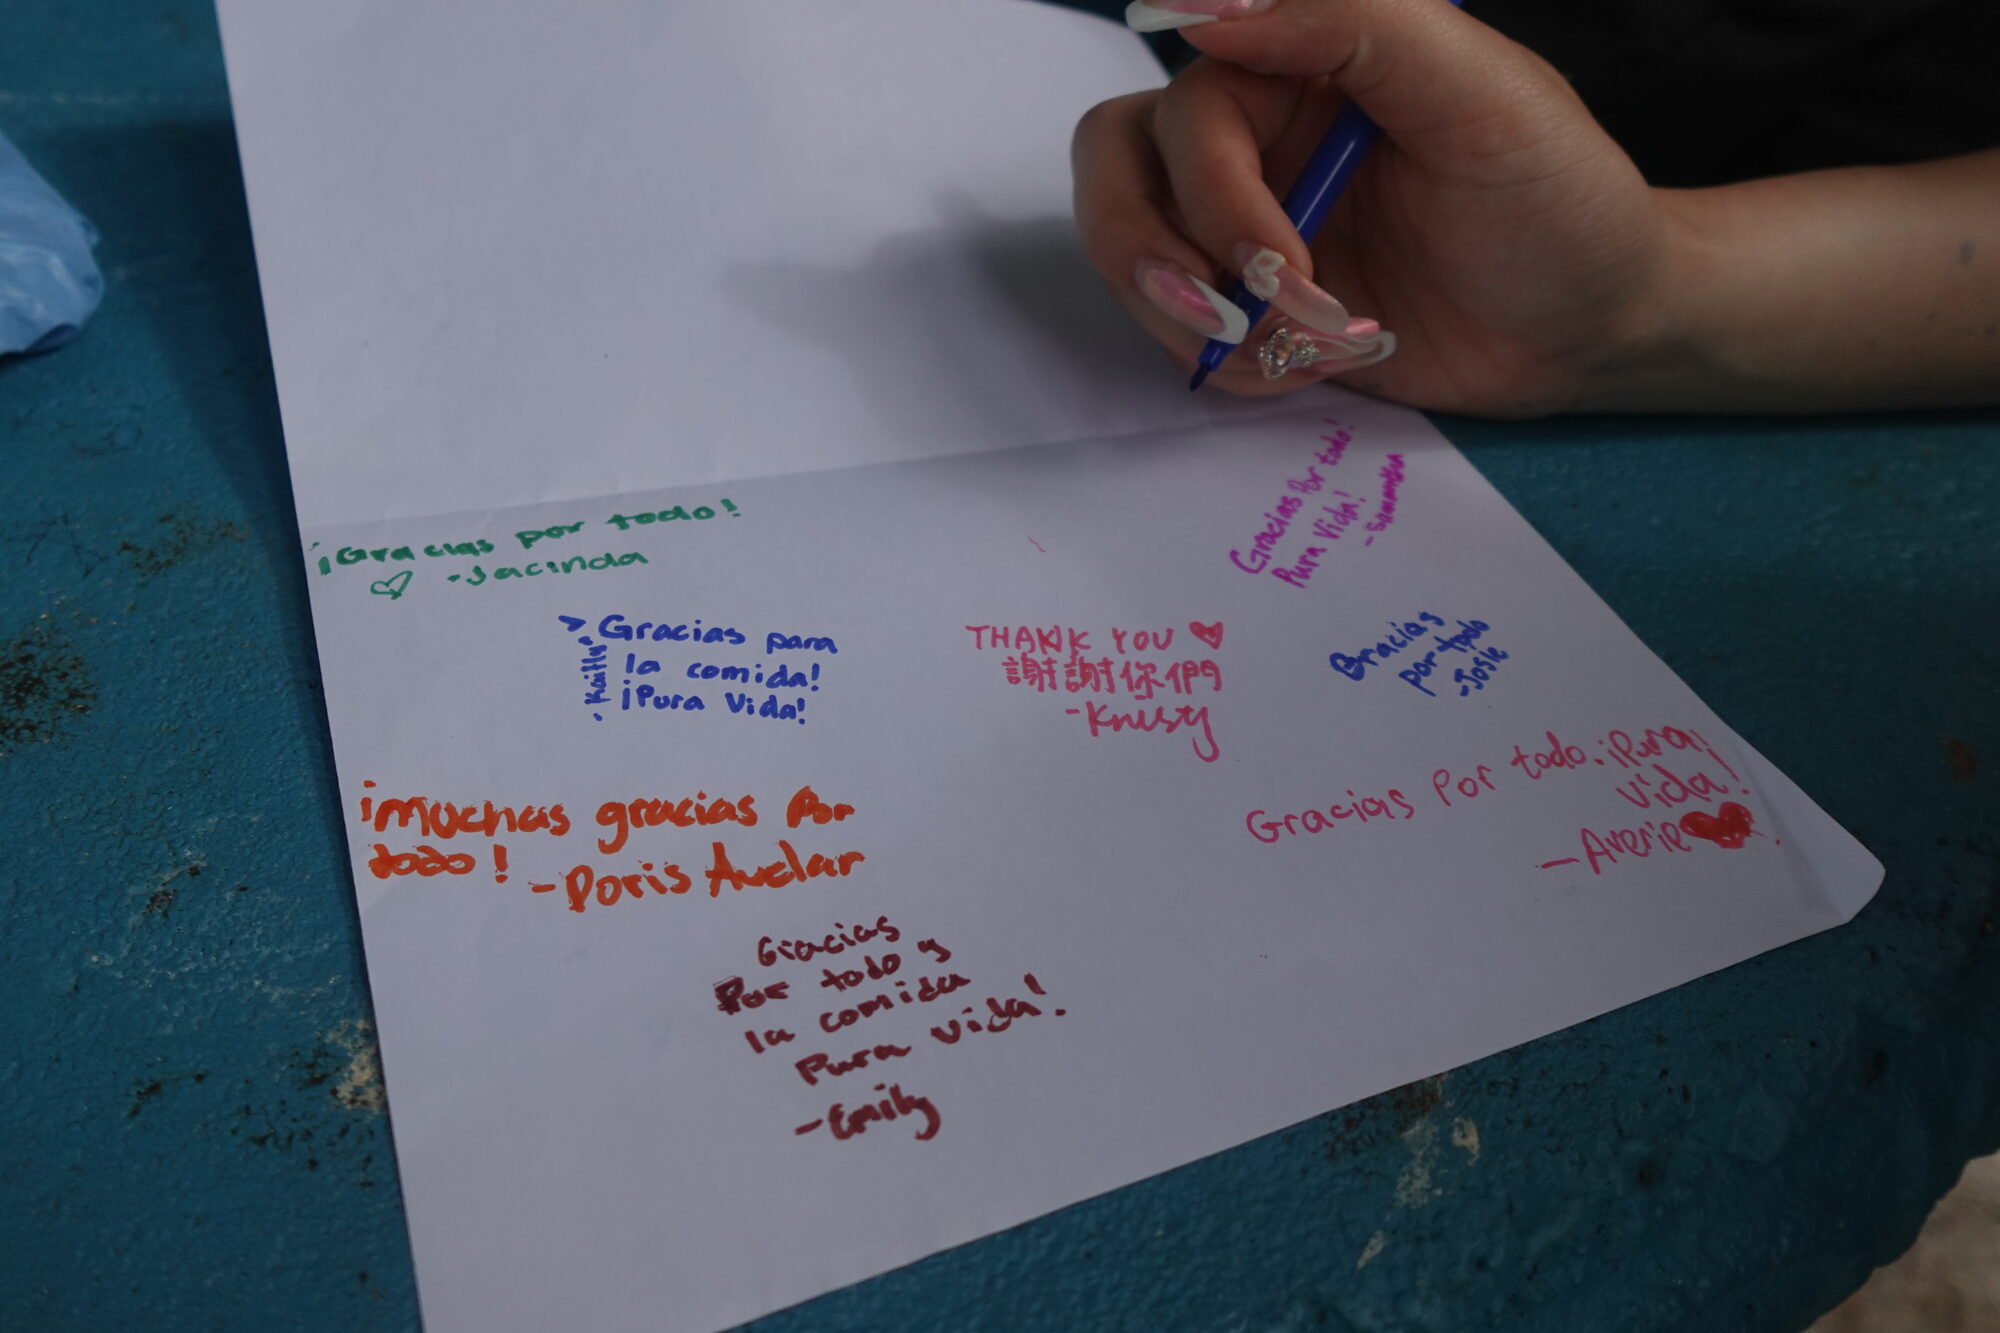 ¡Gracias por todo!
♡ -Jacinda
Gracias Por todo!
Pura Vida!
- Samantha
> Gracias para
la comida!
¡Pura Vida!
- Kaitlyn
THANK YOU ♥
謝謝你們
-Kristy
Gracias
por todo
-Josie
Gracias Por todo. ¡Pura¡
vida!
-Averie ♥
¡Muchas gracias Por
todo! -Doris Avelar
Gracias
Por todo y
la comida
Pura vida!
-Emily